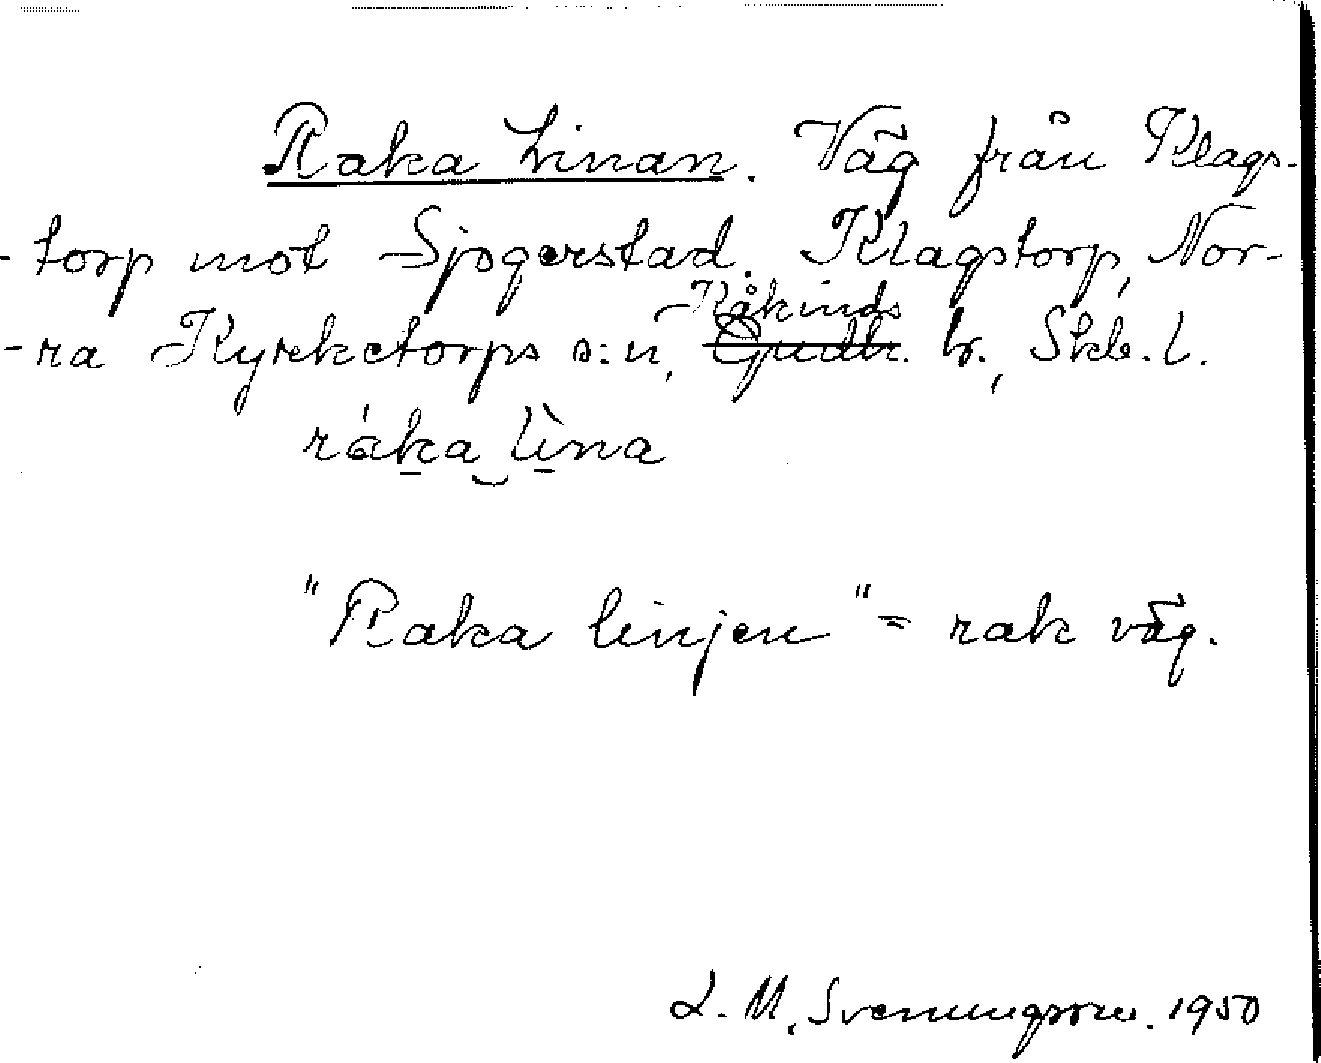 Raka Linan. Väg från Klags-
-torp mot Sjogerstad. Klagstorp, Nor-
Kåkinds
-ra Kyrketorps s:n, Gudh. h., Skb. l.
ráka lìna
"Raka linjen" = rak väg.
L. M. Svenungsson. 1950